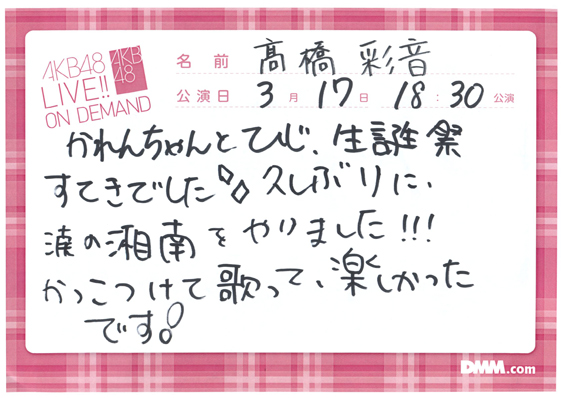 AKB48
LIVE!!
ON DEMAND
AKB
48
名前 髙橋 彩音
公演日 3月17日 18:30公演
かれんちゃんとてひじ、生誕祭
すてきでした 久しぶりに、
涙の湘南をやりました!!!
かっこつけて歌って、楽しかった
です。
DMM.com